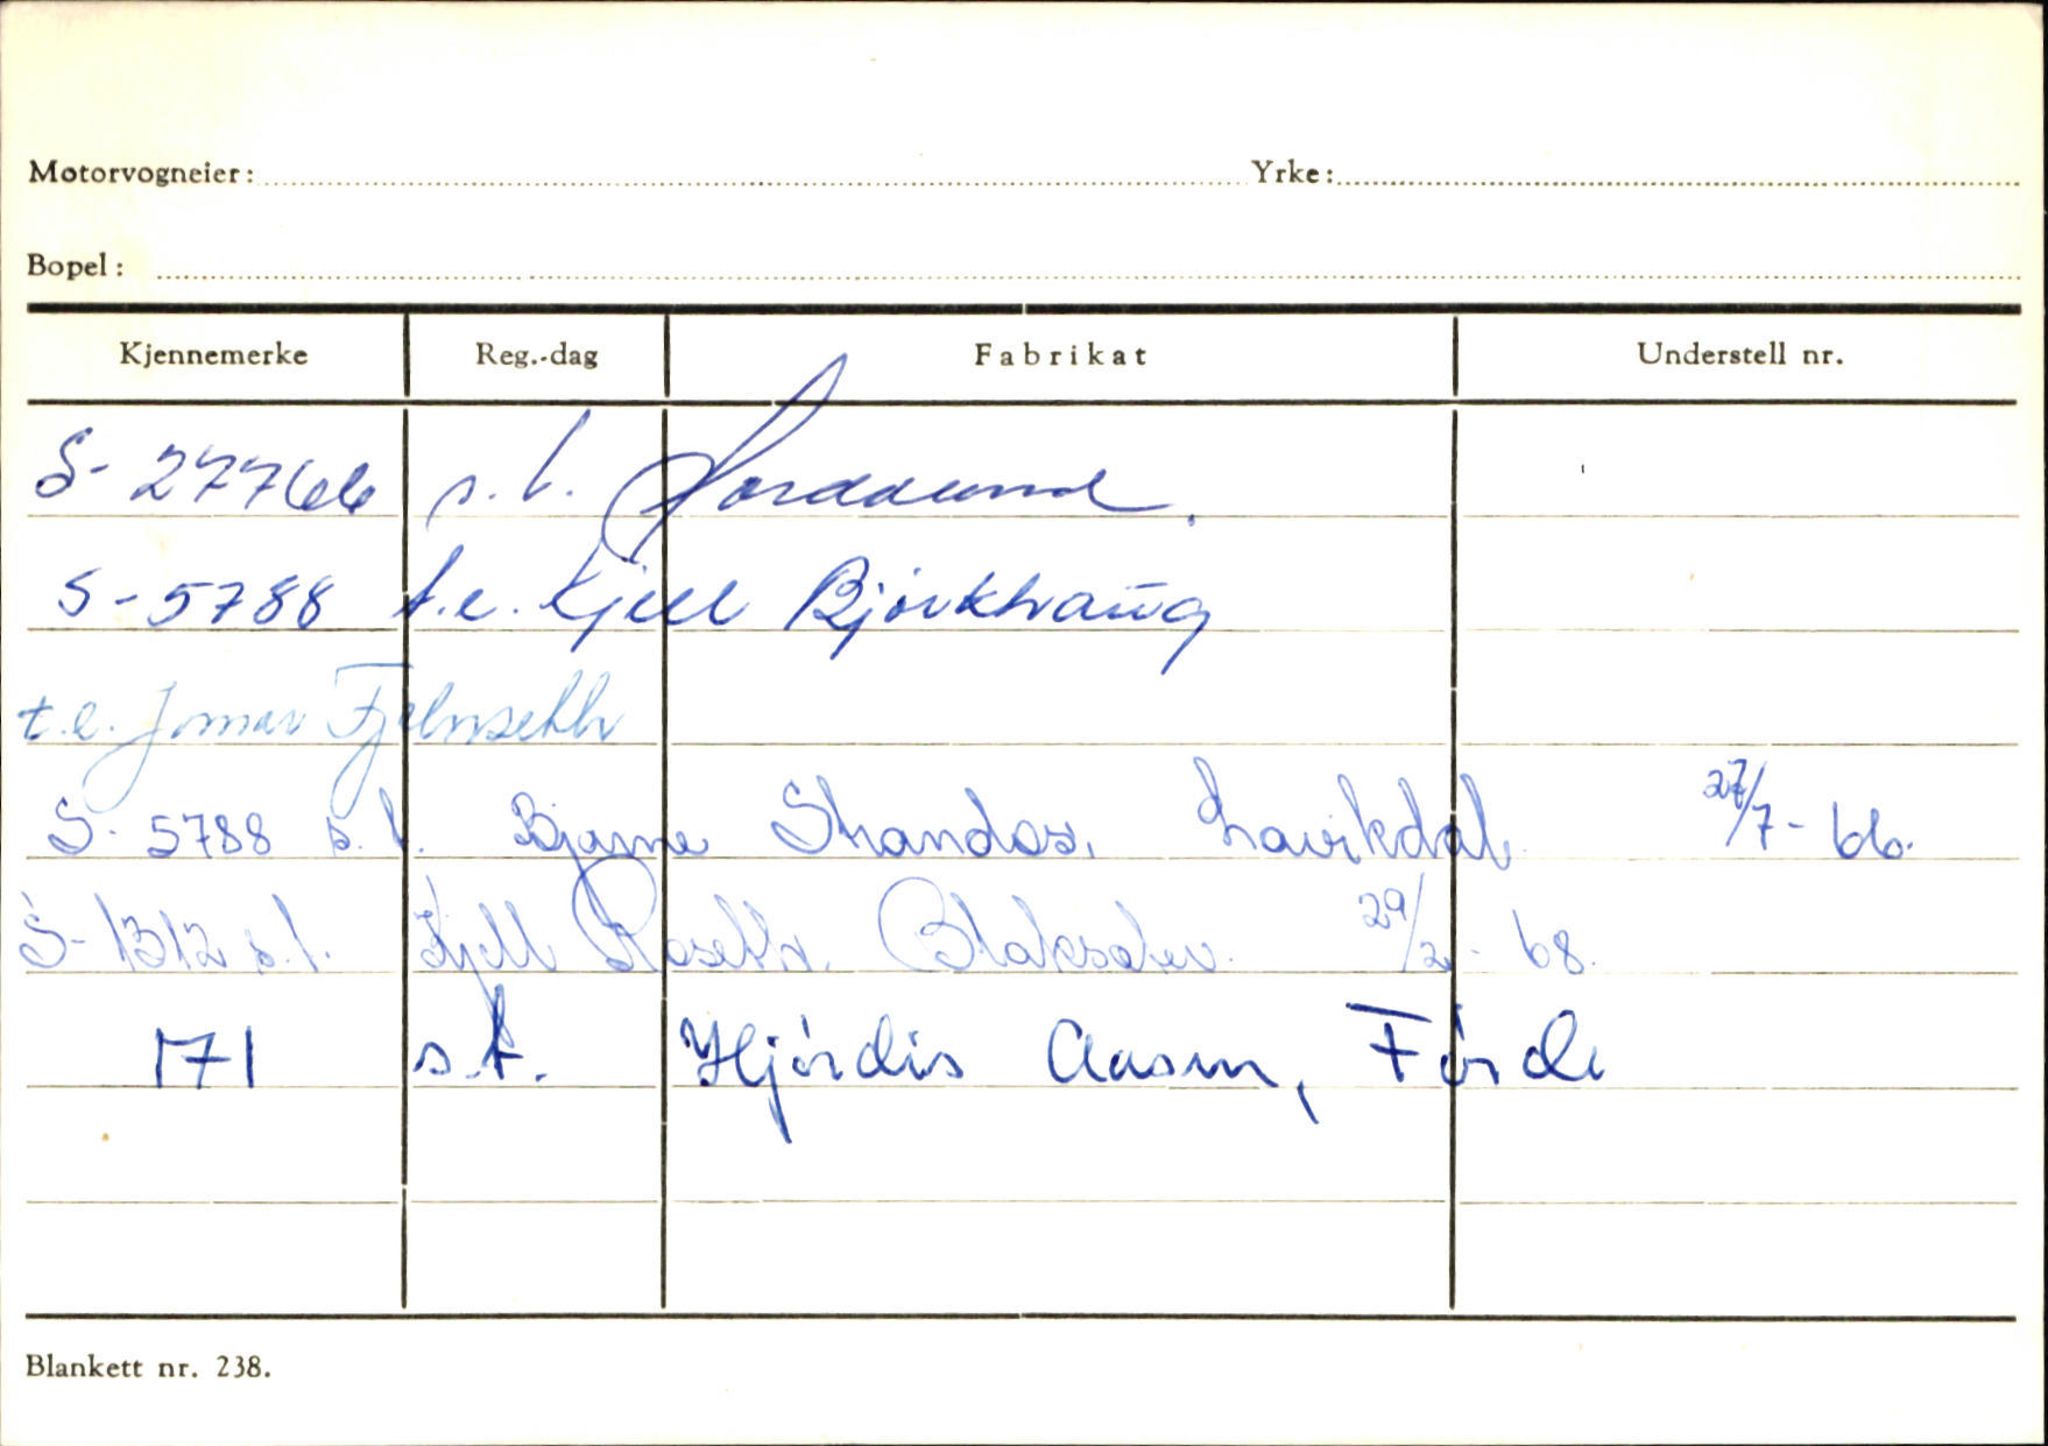 Motorvogneier: Yrke:
Bopel:
Kjennemerke Reg.-dag Fabrikat Understell nr.
S-27766 s.t.
S-5788 t.e. Kjell Bjørkhaug
t.e. Jomar
S-5788 s.t. Bjarne Strandos, Lavikdal 27/7-66.
S-1312 s.t. Kjell Roseth. 29/2-68.
171 s.t. Hjørdis Aasen, Førde
Blankett nr. 238.